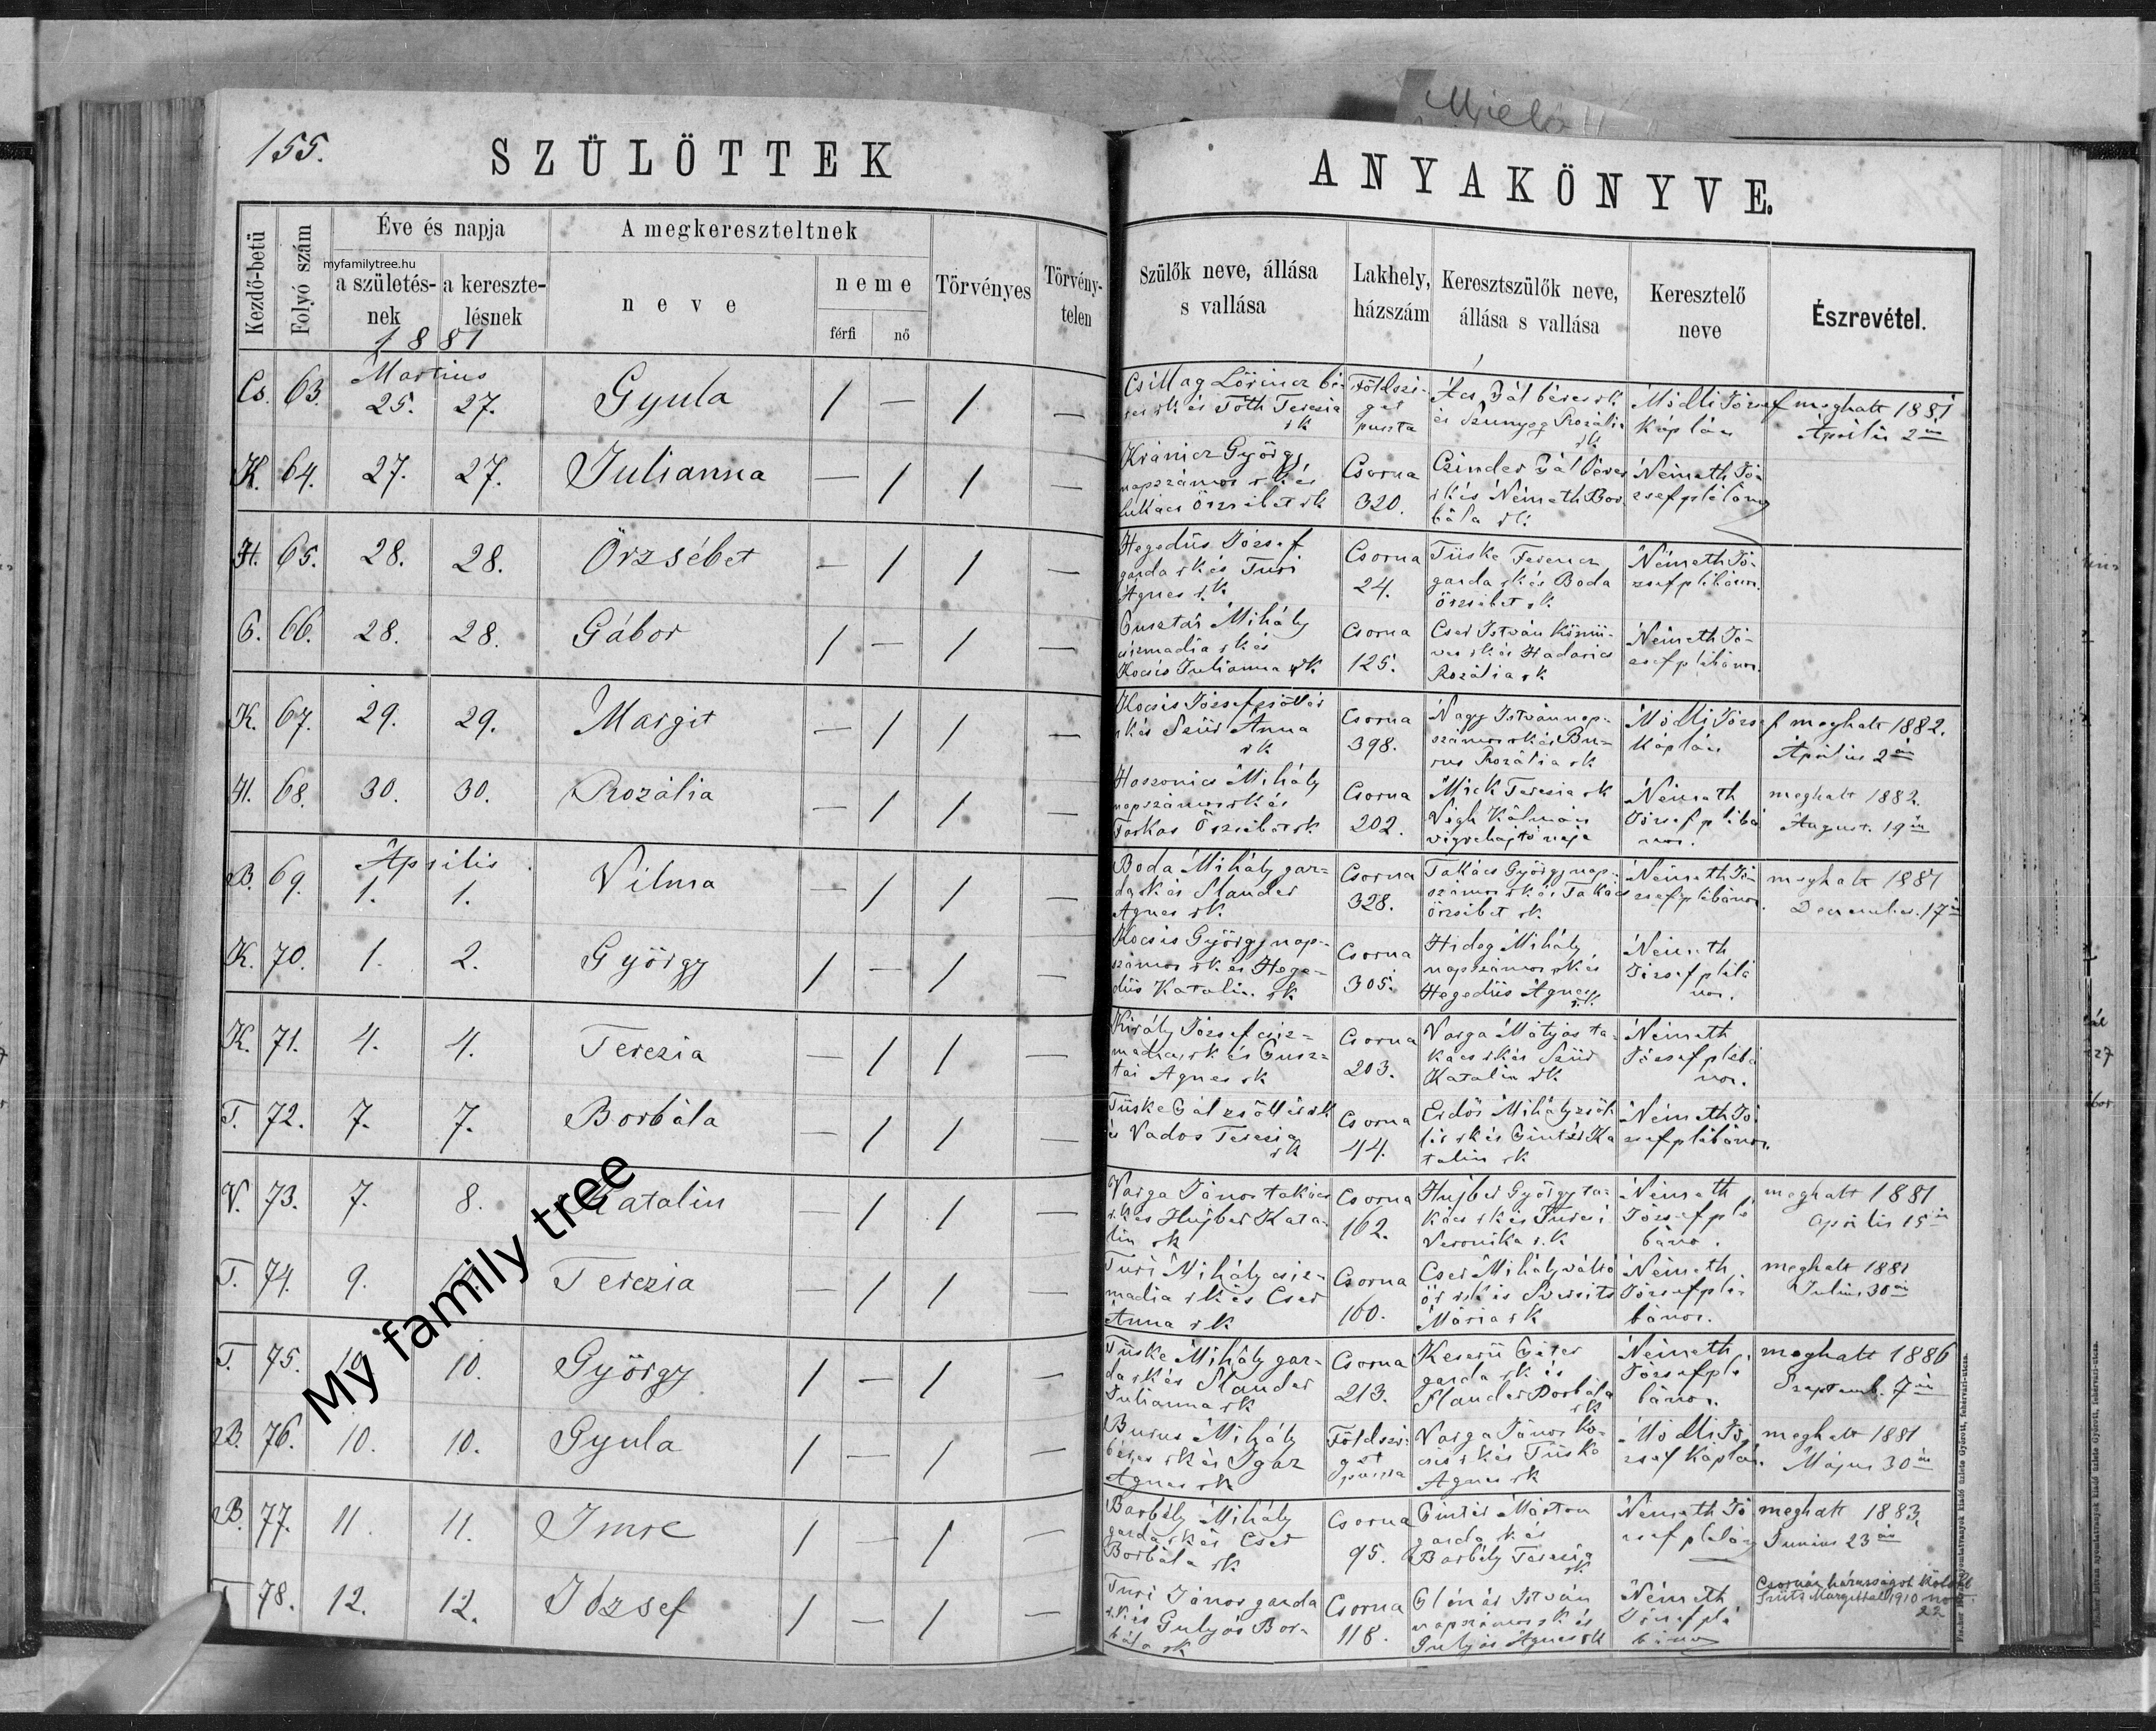 155.
SZÜLÖTTEK
ANYAKÖNYVE.
Kezdő-betü
Folyó szám
Éve és napja
a születés-
nek
a keresztelésnek
1881
A megkereszteltnek
neve
neme
férfi
nő
Törvényes
Törvény-
telen
Szülők neve, állása
s vallása
Lakhely,
házszám
Keresztszülők neve,
állása s vallása
Keresztelő
neve
Észrevétel.
myfamilytree.hu
Cs. 63. Martius 25. 27. Gyula / — / —
Csillag Lőrincz bé-
res rk és Tóth Terezia
rk
Földszi-
get
puszta
Ács Pál béres rk
és Szunyog Rozália
rk
Módli József
káplán
meghalt 1881
Április 2án
K. 64. 27. 27. Julianna — / / —
Kránicz György
napszámos rk és
Lukács Örzsébet rk
Csorna
320.
Czinder Pál béres
rk és Németh Bor
bála rk
Németh Jó
zsef plébános
H. 65. 28. 28. Örzsébet — / / —
Hegedüs József
garda rk és Turi
Ágnes rk
Csorna
24.
Tüske Ferencz
garda rk és Boda
Örzsébet rk
Németh Jó-
zsef plébános.
P. 66. 28. 28. Gábor / — / —
Pusztai Mihály
csizmadia rk és
Kocsis Julianna rk
Csorna
125.
Cser István kőmü-
ves rk és Hadarics
Rozália rk
Németh Jó-
zsef plébános.
K. 67. 29. 29. Margit — / / —
Kocsis József zsöllér
rk és Szür Anna
rk
Csorna
398.
Nagy István nap-
számos rk és Bu-
rus Rozália rk
Módli József
káplán
meghalt 1882.
Április 2án
H. 68. 30. 30. Rozália — / / —
Hoszonics Mihály
napszámos rk és
Farkas Örzsébet rk
Csorna
202.
Mick Terezia rk
Végh Kálmán
végrehajtó neje
Németh
József plébá
nos.
meghalt 1882.
August. 19én
B. 69. Április 1. 1. Vilma — / / —
Boda Mihály gar-
da rk és Slander
Ágnes rk
Csorna
328.
Takács György nap-
számos rk és Takács
Örzsébet rk
Németh Jó-
zsef plébános.
meghalt 1881
December. 17én
K. 70. 1. 2. György / — / —
Kocsis György nap-
számos rk és Hege-
düs Katalin rk
Csorna
305.
Hideg Mihály
napszámos rk és
Hegedüs Ágnes
rk
Németh
József plébá
nos.
K. 71. 4. 4. Terezia — / / —
Király József csiz-
madia rk és Pusz-
tai Ágnes rk
Csorna
203.
Varga Mátyás ta-
kács rk és Szür
Katalin rk
Németh
József plébá
nos.
T. 72. 7. 7. Borbála — / / —
Tüske Pál zsöllér rk
és Vados Terezia
rk
Csorna
44.
Erdős Mihály zsöl
lér rk és Pintér Ka
talin rk
Németh Jó
zsef plébános.
V. 73. 7. 8. Katalin — / / —
Varga János takács
rk és Hujber Kata-
lin rk
Csorna
162.
Hujber György ta-
kács rk és Turcsi
Veronika rk
Németh
József plé
bános.
meghalt 1881
április 15én
T. 74. 9. Terezia — / / —
Turi Mihály csiz-
madia rk és Cser
Anna rk
Csorna
160.
Cser Mihály váltó
őr rk és Szersits
Mária rk
Németh
József plé-
bános.
meghalt 1881
Julius 30án
T. 75. 10. 10. György / — / —
Tüske Mihály gar-
da rk és Slander
Julianna rk
Csorna
213.
Keserü Péter
garda rk és
Slander Borbála
rk
Németh
József plé
bános.
meghalt 1886
Szeptemb. 7én
B. 76. 10. 10. Gyula / — / —
Burus Mihály
béres rk és Igaz
Ágnes rk
Földszi-
get
puszta
Varga János ko-
csis rk és Tüske
Ágnes rk
Módli Jó
zsef káplán.
meghalt 1881
Május 30án
B. 77. 11. 11. Imre / — / —
Borbély Mihály
garda rk és Cser
Borbála rk
Csorna
95.
Pintér Márton
garda rk és
Borbély Terezia
rk
Németh Jó
zsef plébános
meghalt 1883.
Junius 23án
T. 78. 12. 12. József / — / —
Turi János garda
rk és Gulyás Bor-
bála rk
Csorna
118.
Plénár István
napszámos rk és
Gulyás Ágnes rk
Németh
József plé
bános
Csornán házasságot kötött
Szüts Margittal 1910 nov.
22
My family tree